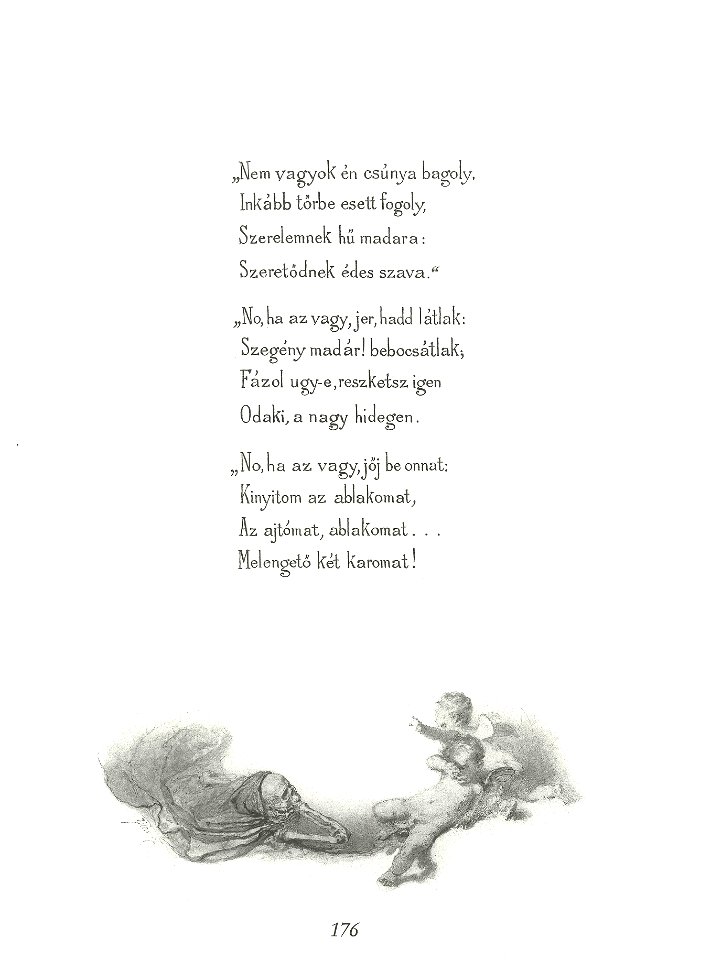 „Nem vagyok én csúnya bagoly,
Inkább tőrbe esett fogoly,
Szerelemnek hű madara:
Szeretődnek édes szava.“
„No, ha az vagy, jer, hadd látlak:
Szegény madár! bebocsátlak;
Fázol ugy-e, reszketsz igen
Odaki, a nagy hidegen.
„No, ha az vagy, jőj be onnat:
Kinyitom az ablakomat,
Az ajtómat, ablakomat . . .
Melengető két karomat!
176